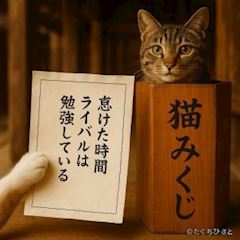 怠けた時間
ライバルは
勉強している
猫みくじ
©たぐちひさと